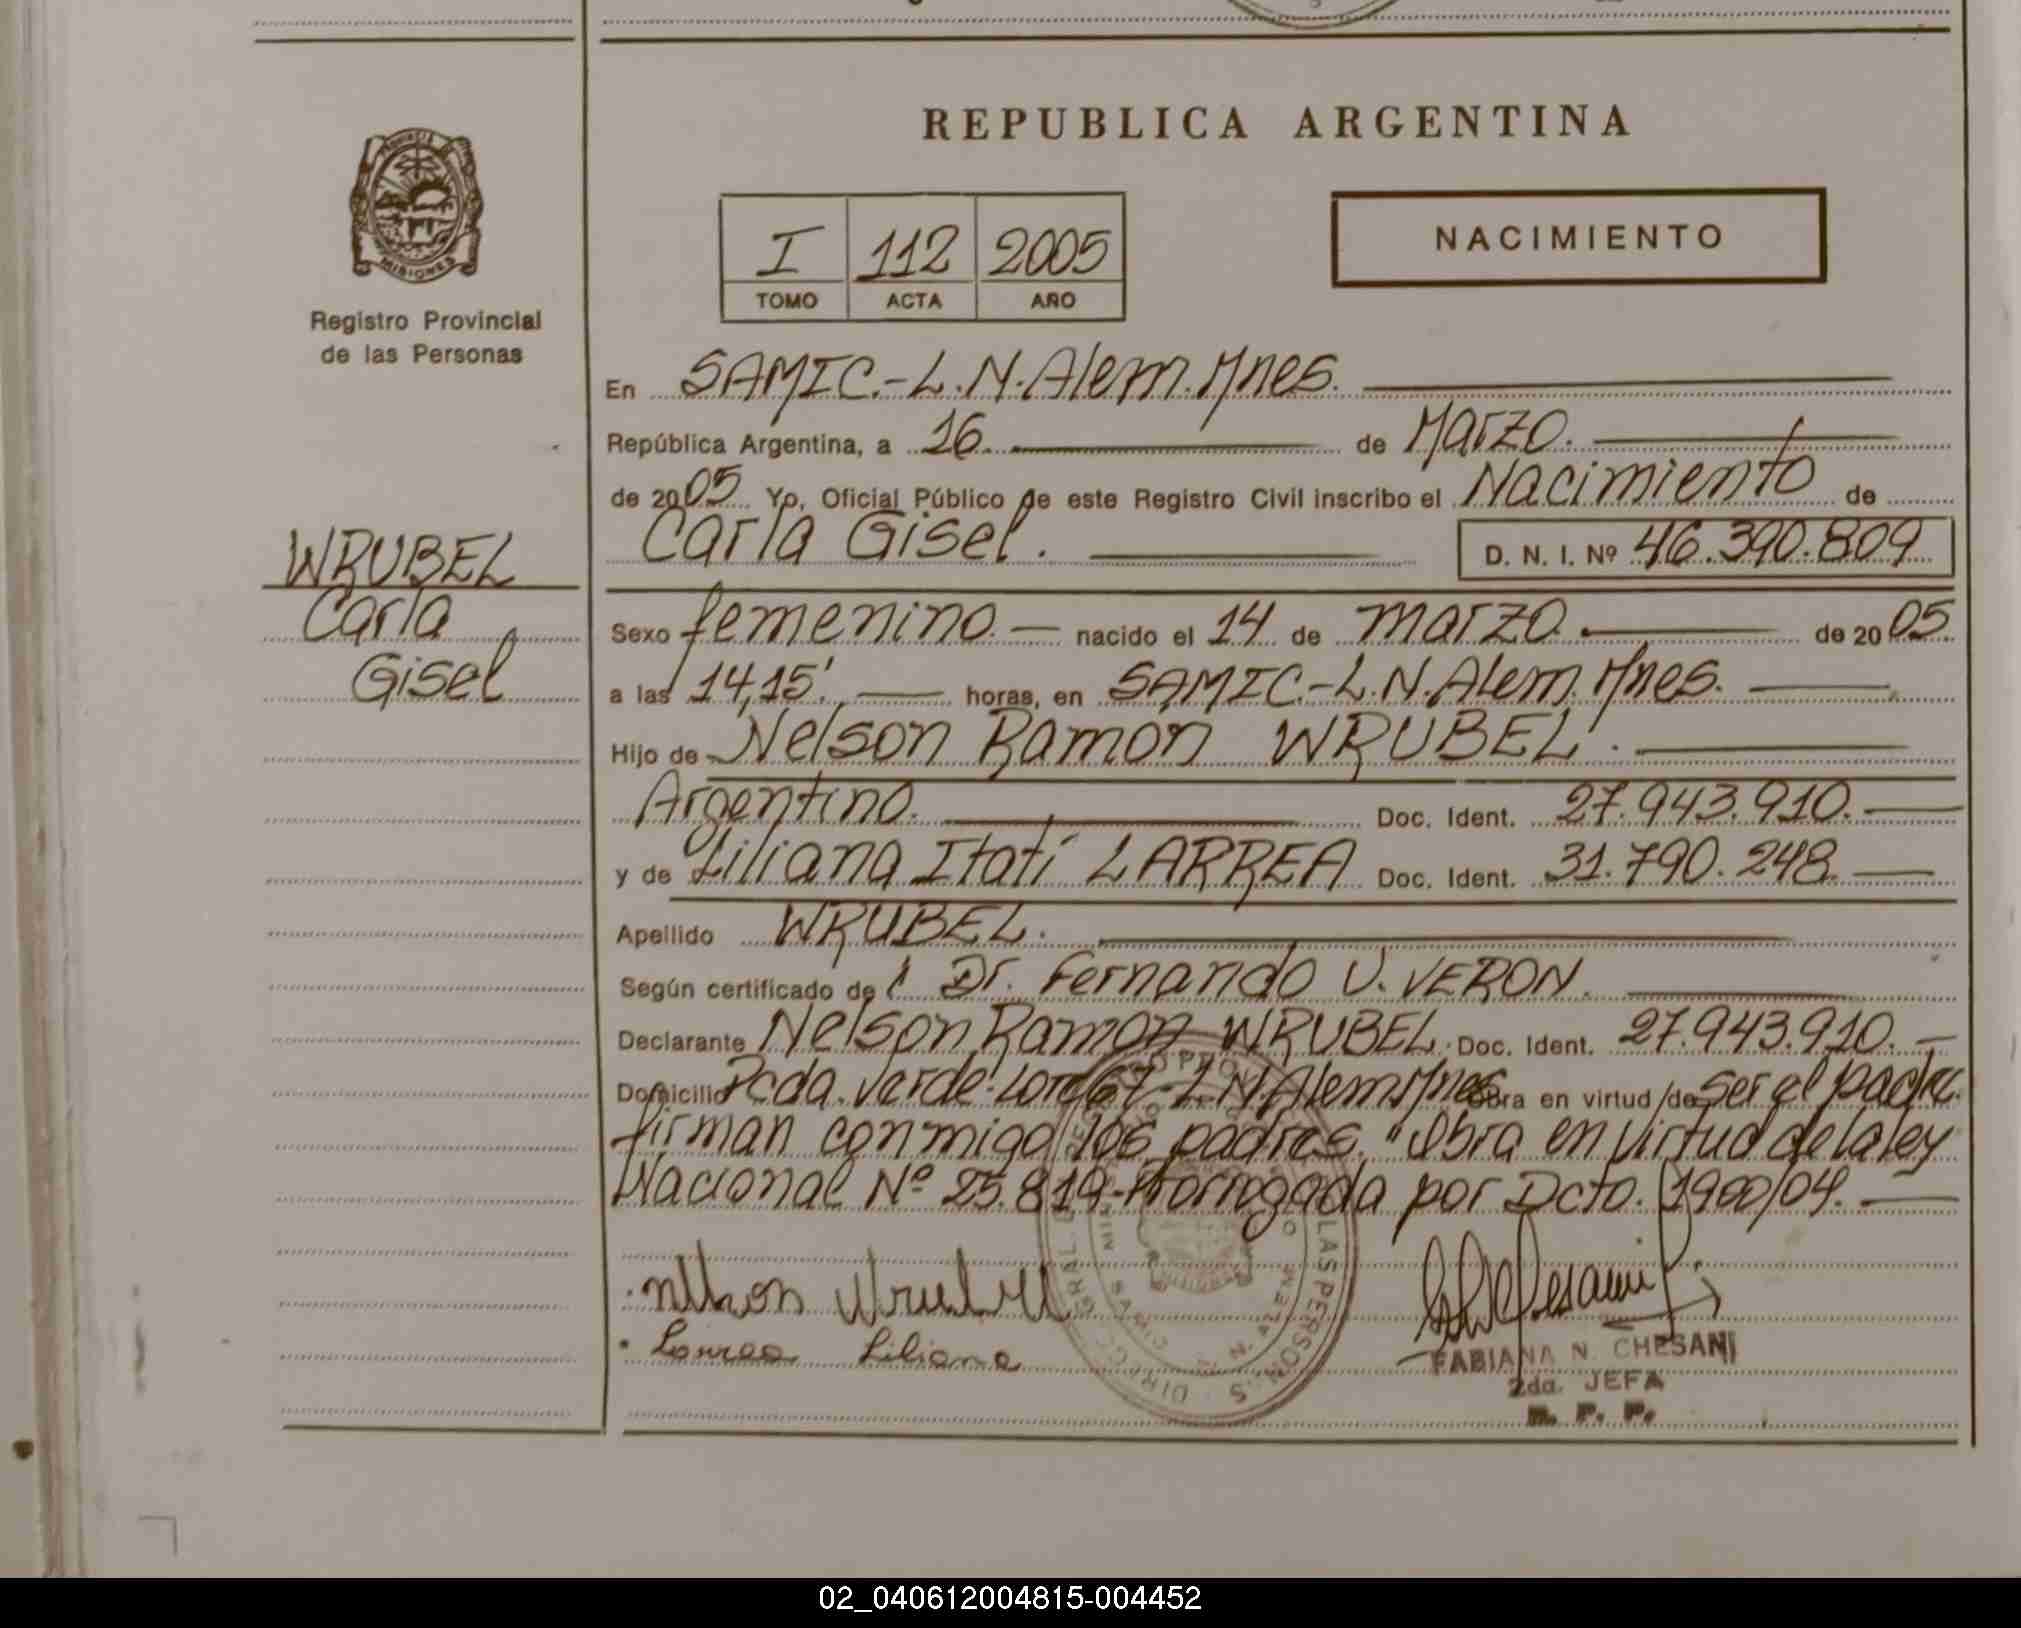 REPUBLICA ARGENTINA
NACIMIENTO
I 112 2005
TOMO ACTA AÑO
MISIONES
Registro Provincial
de las Personas
WRUBEL
Carla
Gisel
En SAMIC.-L.N.Alem.Mnes.
República Argentina, a 16 de Marzo.
de 2005 Yo, Oficial Público de este Registro Civil inscribo el Nacimiento de
Carla Gisel. D. N. I. Nº 46.390.809
Sexo femenino nacido el 14 de marzo de 2005
a las 14,15' horas, en SAMIC.-L.N.Alem.Mnes.
Hijo de Nelson Ramon WRUBEL.
Argentino. Doc. Ident. 27.943.910.
y de Liliana Itatí LARREA Doc. Ident. 31.790.248.
Apellido WRUBEL.
Según certificado de Dr. Fernando U. VERON.
Declarante Nelson Ramon WRUBEL. Doc. Ident. 27.943.910.
Domicilio Pcda. Verde- L.N.Alem.Mnes. Obra en virtud de ser el padre.
firman conmigo los padres. "Obra en virtud de la ley
Nacional Nº 25.819-Prorrogada por Dcto. 1900/04.
Nelson Wrubel
Larrea Liliana
FABIANA N. CHESANI
2da. JEFA
R. P. P.
02_040612004815-004452